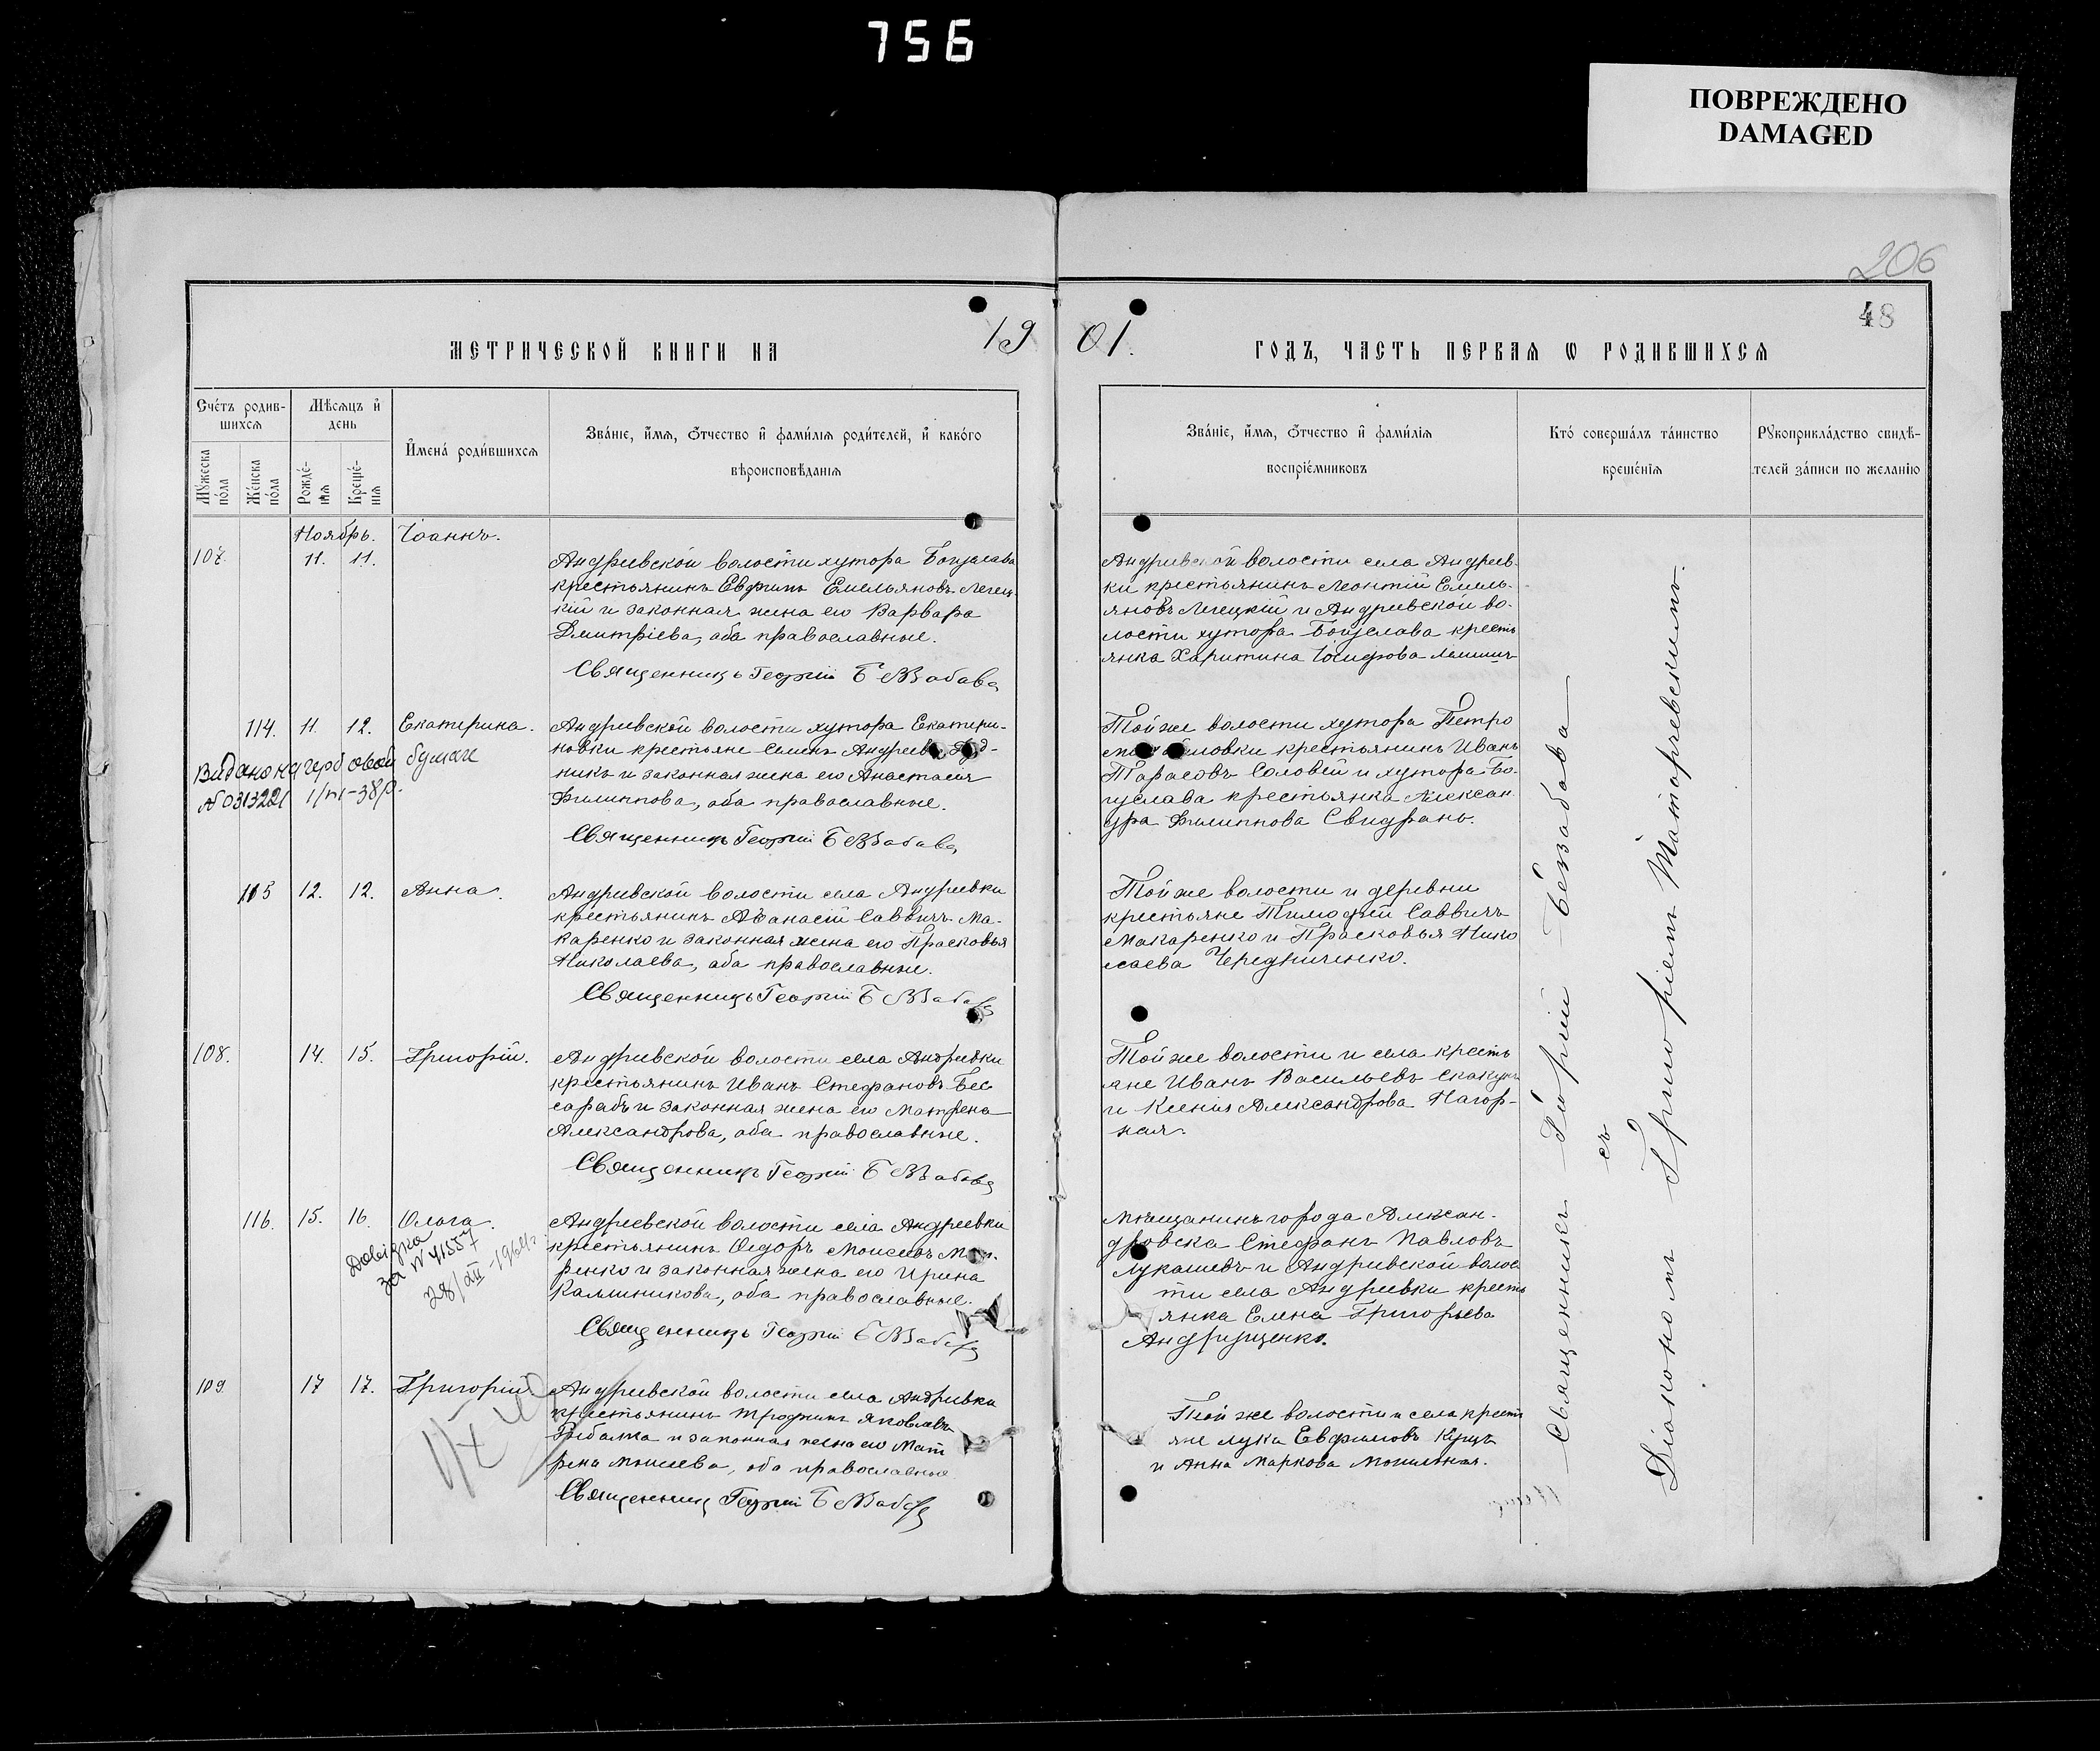 756
ПОВРЕЖДЕНО
DAMAGED
206
48
МЕТРИЧЕСКОЙ КНИГИ НА 19
01. ГОДЪ, ЧАСТЬ ПЕРВАЯ Ѡ РОДИВШИХСЯ
Счетъ родив-
шихся
Мѣсяцъ и
день
Мужеска
пола
Женска
пола
Рожде-
нія
Креще-
нія
Имена родившихся
Званіе, имя, отчество и фамилія родителей, и какого
вѣроисповѣданія
Званіе, имя, отчество и фамилія
воспріемниковъ
Кто совершалъ таинство
крещенія
Рукоприкладство свидѣ-
телей записи по желанію
Ноябрь. Іоаннъ.
107. 11. 11.
Андреевской волости хутора Богуслава
крестьянинъ Евфимъ Емельяновъ Легец-
кій и законная жена его Варвара
Дмитріева, оба православные.
Священникъ Георгій Беззабава
Андреевской волости села Андреев-
ки крестьянинъ Леонтій Емель-
яновъ Легецкій и Андреевской во-
лости хутора Богуслава кресть
янка Харитина
114. 11. 12. Екатерина.
Андреевской волости хутора Екатери-
новки крестьяне Семенъ Андреевъ
никъ и законная жена его Анастасія
Филиппова, оба православные.
Священникъ Георгій Беззабава
Видано на гербовой бумаге
№ 031322
Той же волости хутора Петро
крестьянинъ Иванъ
Тарасовъ Соловей и хутора Бо-
гуслава крестьянка Алексан-
дра Филиппова Свидранъ.
115 12. 12. Анна.
Андреевской волости села Андреевки
крестьянинъ Аѳанасій Саввичъ Ма-
каренко и законная жена его Прасковья
Николаева, оба православные.
Священникъ Георгій Беззабава
Той же волости и деревни
крестьяне Тимофей Саввичъ
Макаренко и Прасковья Нико
лаева Чередниченко.
108. 14. 15. Григорій.
Андреевской волости села Андреевки
крестьянинъ Иванъ Стефановъ Бес
сарабъ и законная жена его Матрена
Александрова, оба православные.
Священникъ Георгій Беззабава
Той же волости и села кресть
яне Иванъ Васильевъ Скакунъ
и Ксенія Александрова Нагор-
ная.
116. 15. 16. Ольга.
Андреевской волости села Андреевки
крестьянинъ Ѳедоръ Моисеевъ
ренко и законная жена его Ирина
Калинникова, оба православные.
Священникъ Георгій Беззабава
Довідка
за № 41557
28/XII-1964г.
Мѣщанинъ города Алексан-
дровска Стефанъ Павловъ
Лукашевъ и Андреевской волос
ти села Андреевки кресть
янка Елена Григорьева
Андрущенко.
109 17 17. Григорій
Андреевской волости села Андреевки
крестьянинъ Трофимъ Яковлевъ
Рыбалка и законная жена его Мат
рена Моисеева, оба православные.
Священникъ Георгій Беззабава
Той же волости и села кресть
яне Лука Евфимовъ Куцъ
и Анна Маркова Могильная.
Священникъ Георгій Беззабава
съ
Діакономъ Григоріемъ